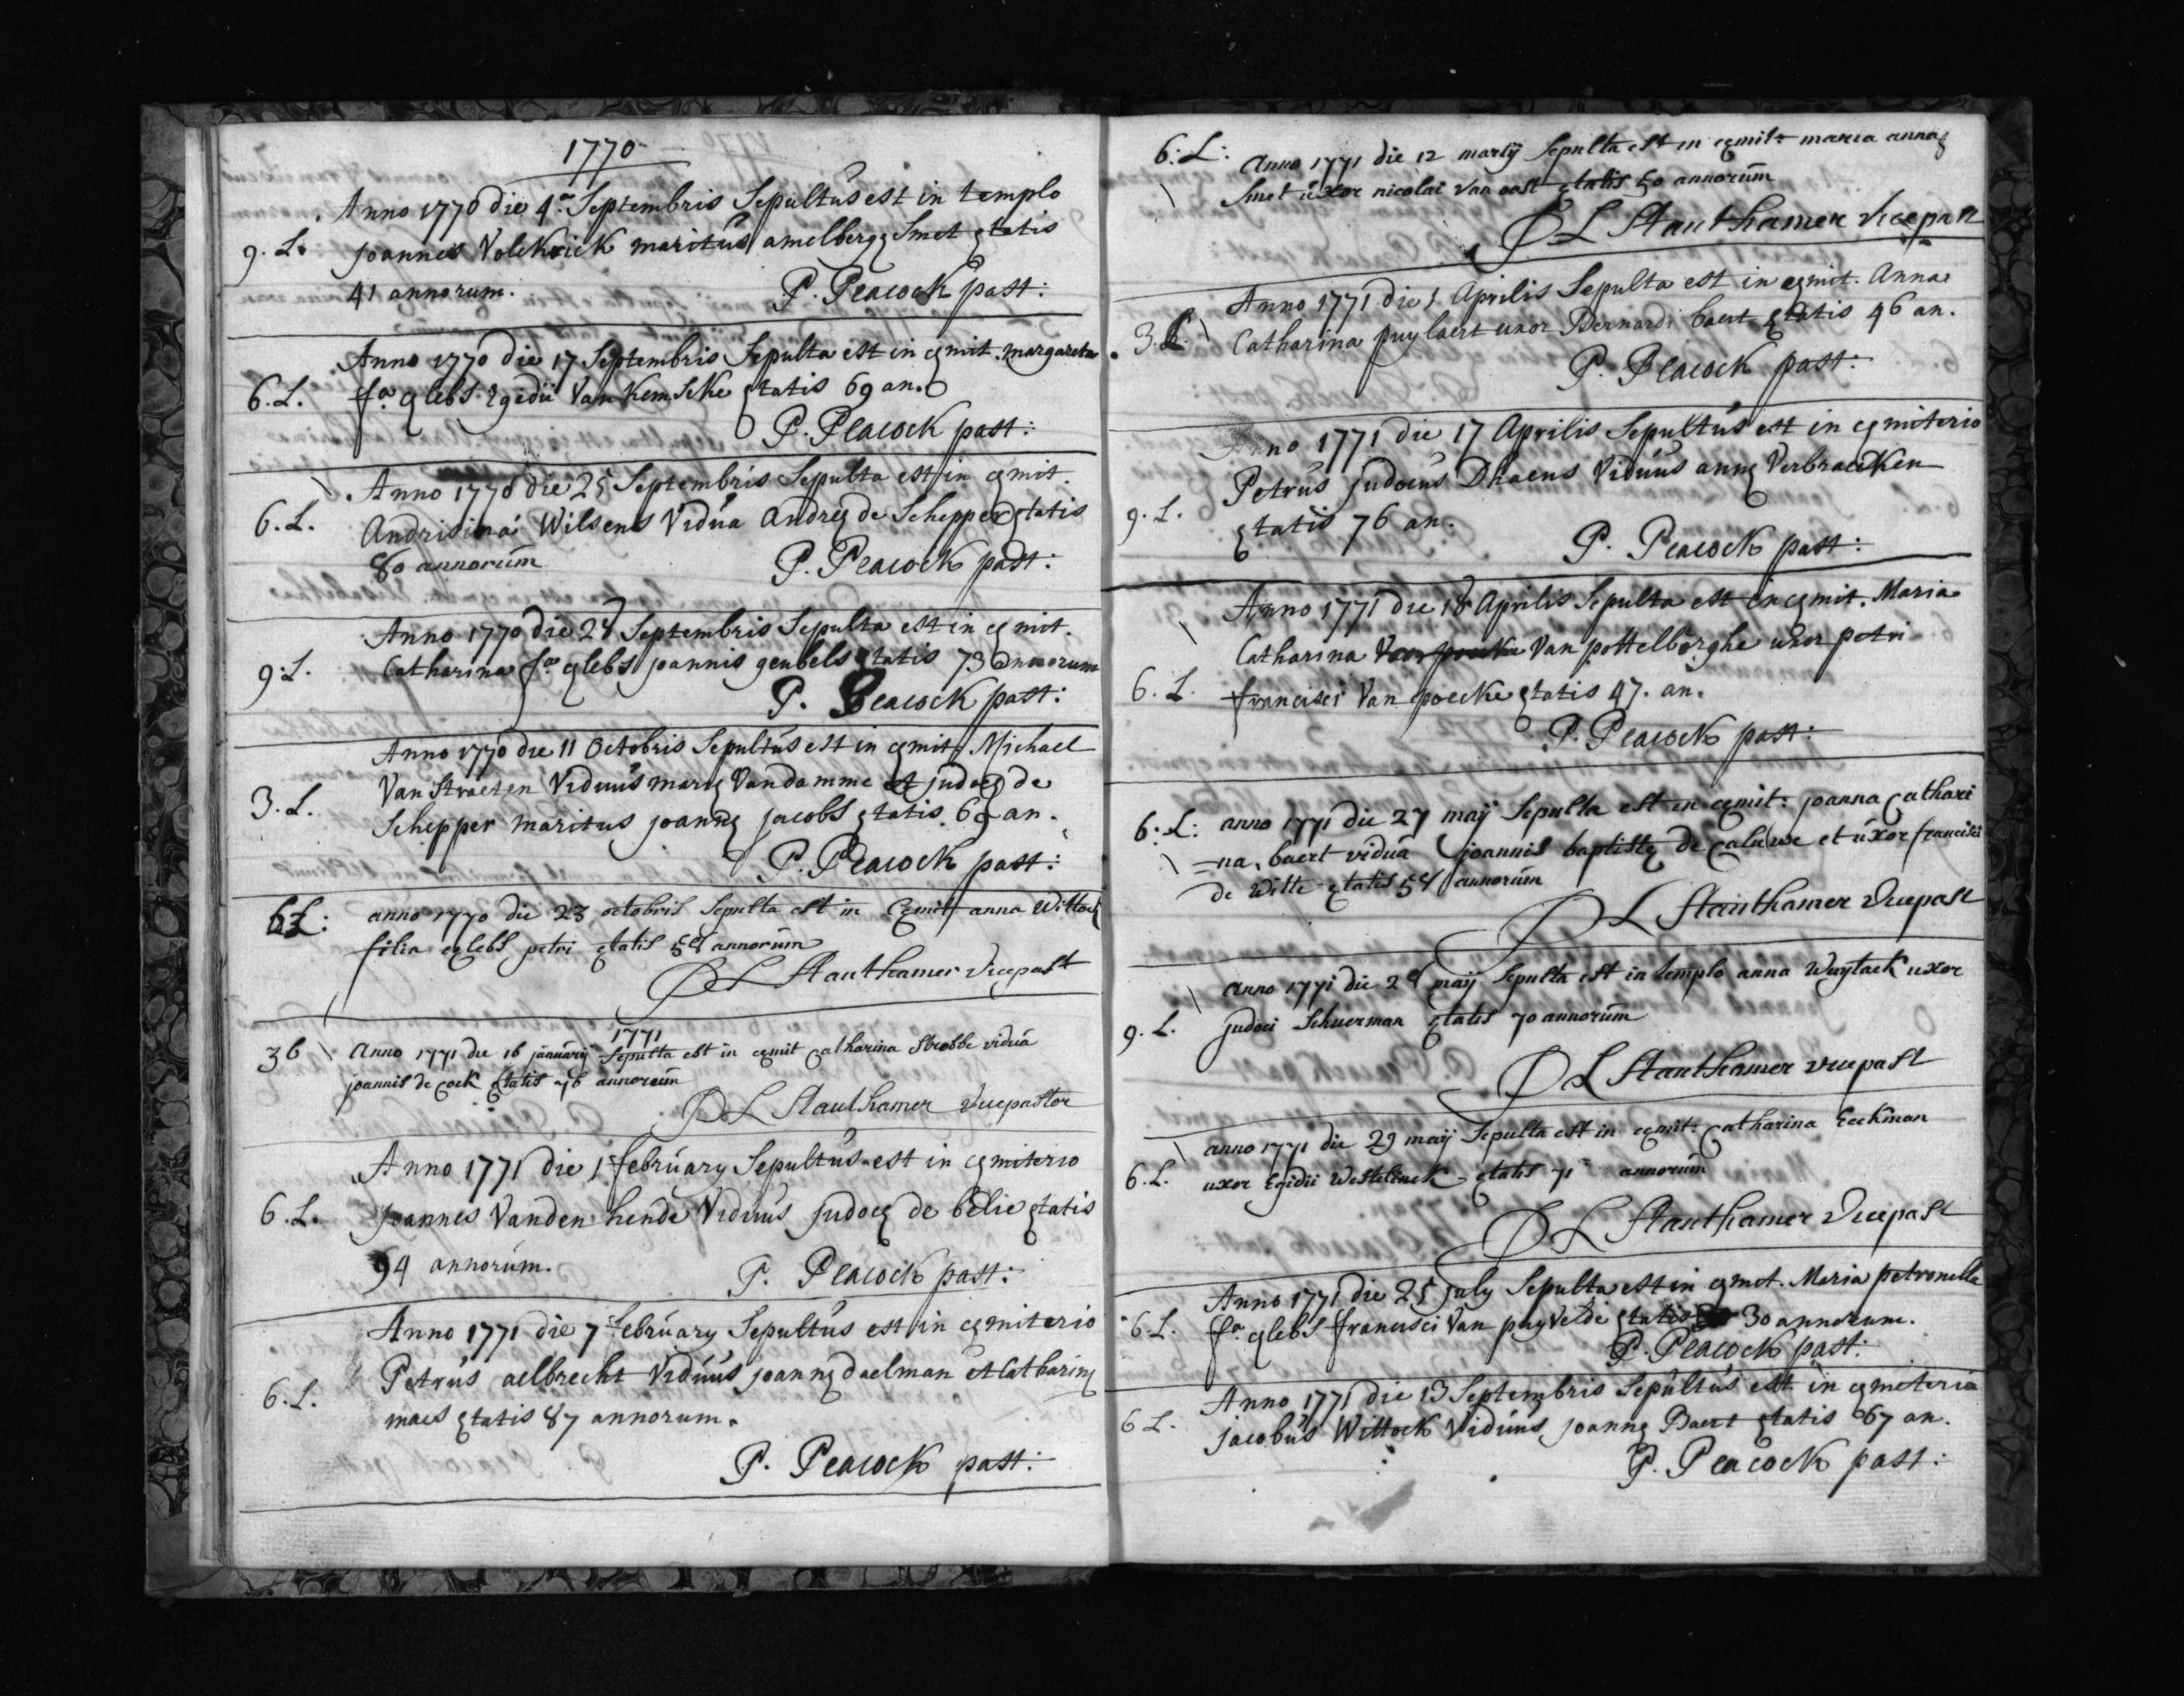 1770
Anno 1770 die 4a Septembris Sepultus est in templo
9. L. joannes Volckrick maritus amelbergę Smet ętatis
41 annorum. P. Peacock past:
Anno 1770 die 17 Septembris Sepulta est in cęmit. margareta
6. L. fa cęlebs Egedii Van Kemseke ętatis 69 an.
P. Peacock past:
Anno 1770 die 25 Septembris Sepulta est in cęmit.
6. L. Andrisina Wilsens Vidua Andreę de Schepper ętatis
80 annorum P. Peacock past:
Anno 1770 die 28 Septembris Sepulta est in cęmit.
9. L. Catharina fa cęlebs joannis geubels ętatis 73 annorum
P. Peacock past:
Anno 1770 die 11 Octobris Sepultus est in cęmit. Michael
Van Straeten Viduus marię Van damme et judocę de
3. L. Schepper maritus joannę jacobs ętatis 69 an.
P. Peacock past:
6 L: anno 1770 die 23 octobris Sepulta est in Cęmit anna Wittock
filia cęlebs petri ętatis 58 annorum
P L Stauthamer Vicepast
1771
36 Anno 1771 die 16 januarij Sepulta est in cęmit Catharina Strobbe vidua
joannis de Cock ętatis 76 annorum
P L Stauthamer Vicepastor
Anno 1771 die 1 february Sepultus est in cęmiterio
6. L. joannes Vanden hende Viduus judocę de belie ętatis
94 annorum. P. Peacock past:
Anno 1771 die 7 february Sepultus est in cęmiterio
6. L. Petrus aelbrecht Viduus joannę daelman et Catharinę
maes ętatis 87 annorum.
P. Peacock past:
6: L: Anno 1771 die 12 martij Sepulta est in cęmit: maria anna
Smet uxor nicolai Van oost ętatis 50 annorum
P L Stauthamer Vicepast
Anno 1771 die 1 Aprilis Sepulta est in cęmit. Anna
3. L. Catharina puylaert uxor Bernardi baert ętatis 46 an.
P. Peacock past:
Anno 1771 die 17 Aprilis Sepultus est in cęmiterio
Petrus judocus Dhaens Viduus annę Verbraecken
9. L. ętatis 76 an.
P. Peacock past:
Anno 1771 die 18 Aprilis Sepulta est in cęmit. Maria
Catharina Van pottelberghe uxor petri
6. L. francisci Van poecke ętatis 47. an.
P. Peacock past:
6: L: anno 1771 die 27 maij Sepulta est in cęmit: joanna Cathari
=na baert vidua joannis baptistę de Caluwe et uxor francisci
de Witte ętatis 58 annorum
P L Stauthamer Vicepast
Anno 1771 die 28 maij Sepulta est in templo anna Wuytack uxor
9. L. judoci Schuerman ętatis 70 annorum
P L Stauthamer vicepast
anno 1771 die 29 maij Sepulta est in cęmit: Catharina Eeckman
6. L. uxor Egidii Westelinck ętatis 71 annorum
P L Stauthamer Vicepast
Anno 1771 die 25 july Sepulta est in cęmet. Maria petronella
6. L. fa cęlebs francisci Van puyvelde ętatis 30 annorum.
P. Peacock past:
Anno 1771 die 13 Septembris Sepultus est in cęmeterio
6 L. jacobus Wittock Viduus joannę Baert ętatis 67 an.
P. Peacock past: